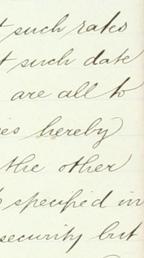 t such rates
t such date
are all to
es hereby
the other
specified in
security but